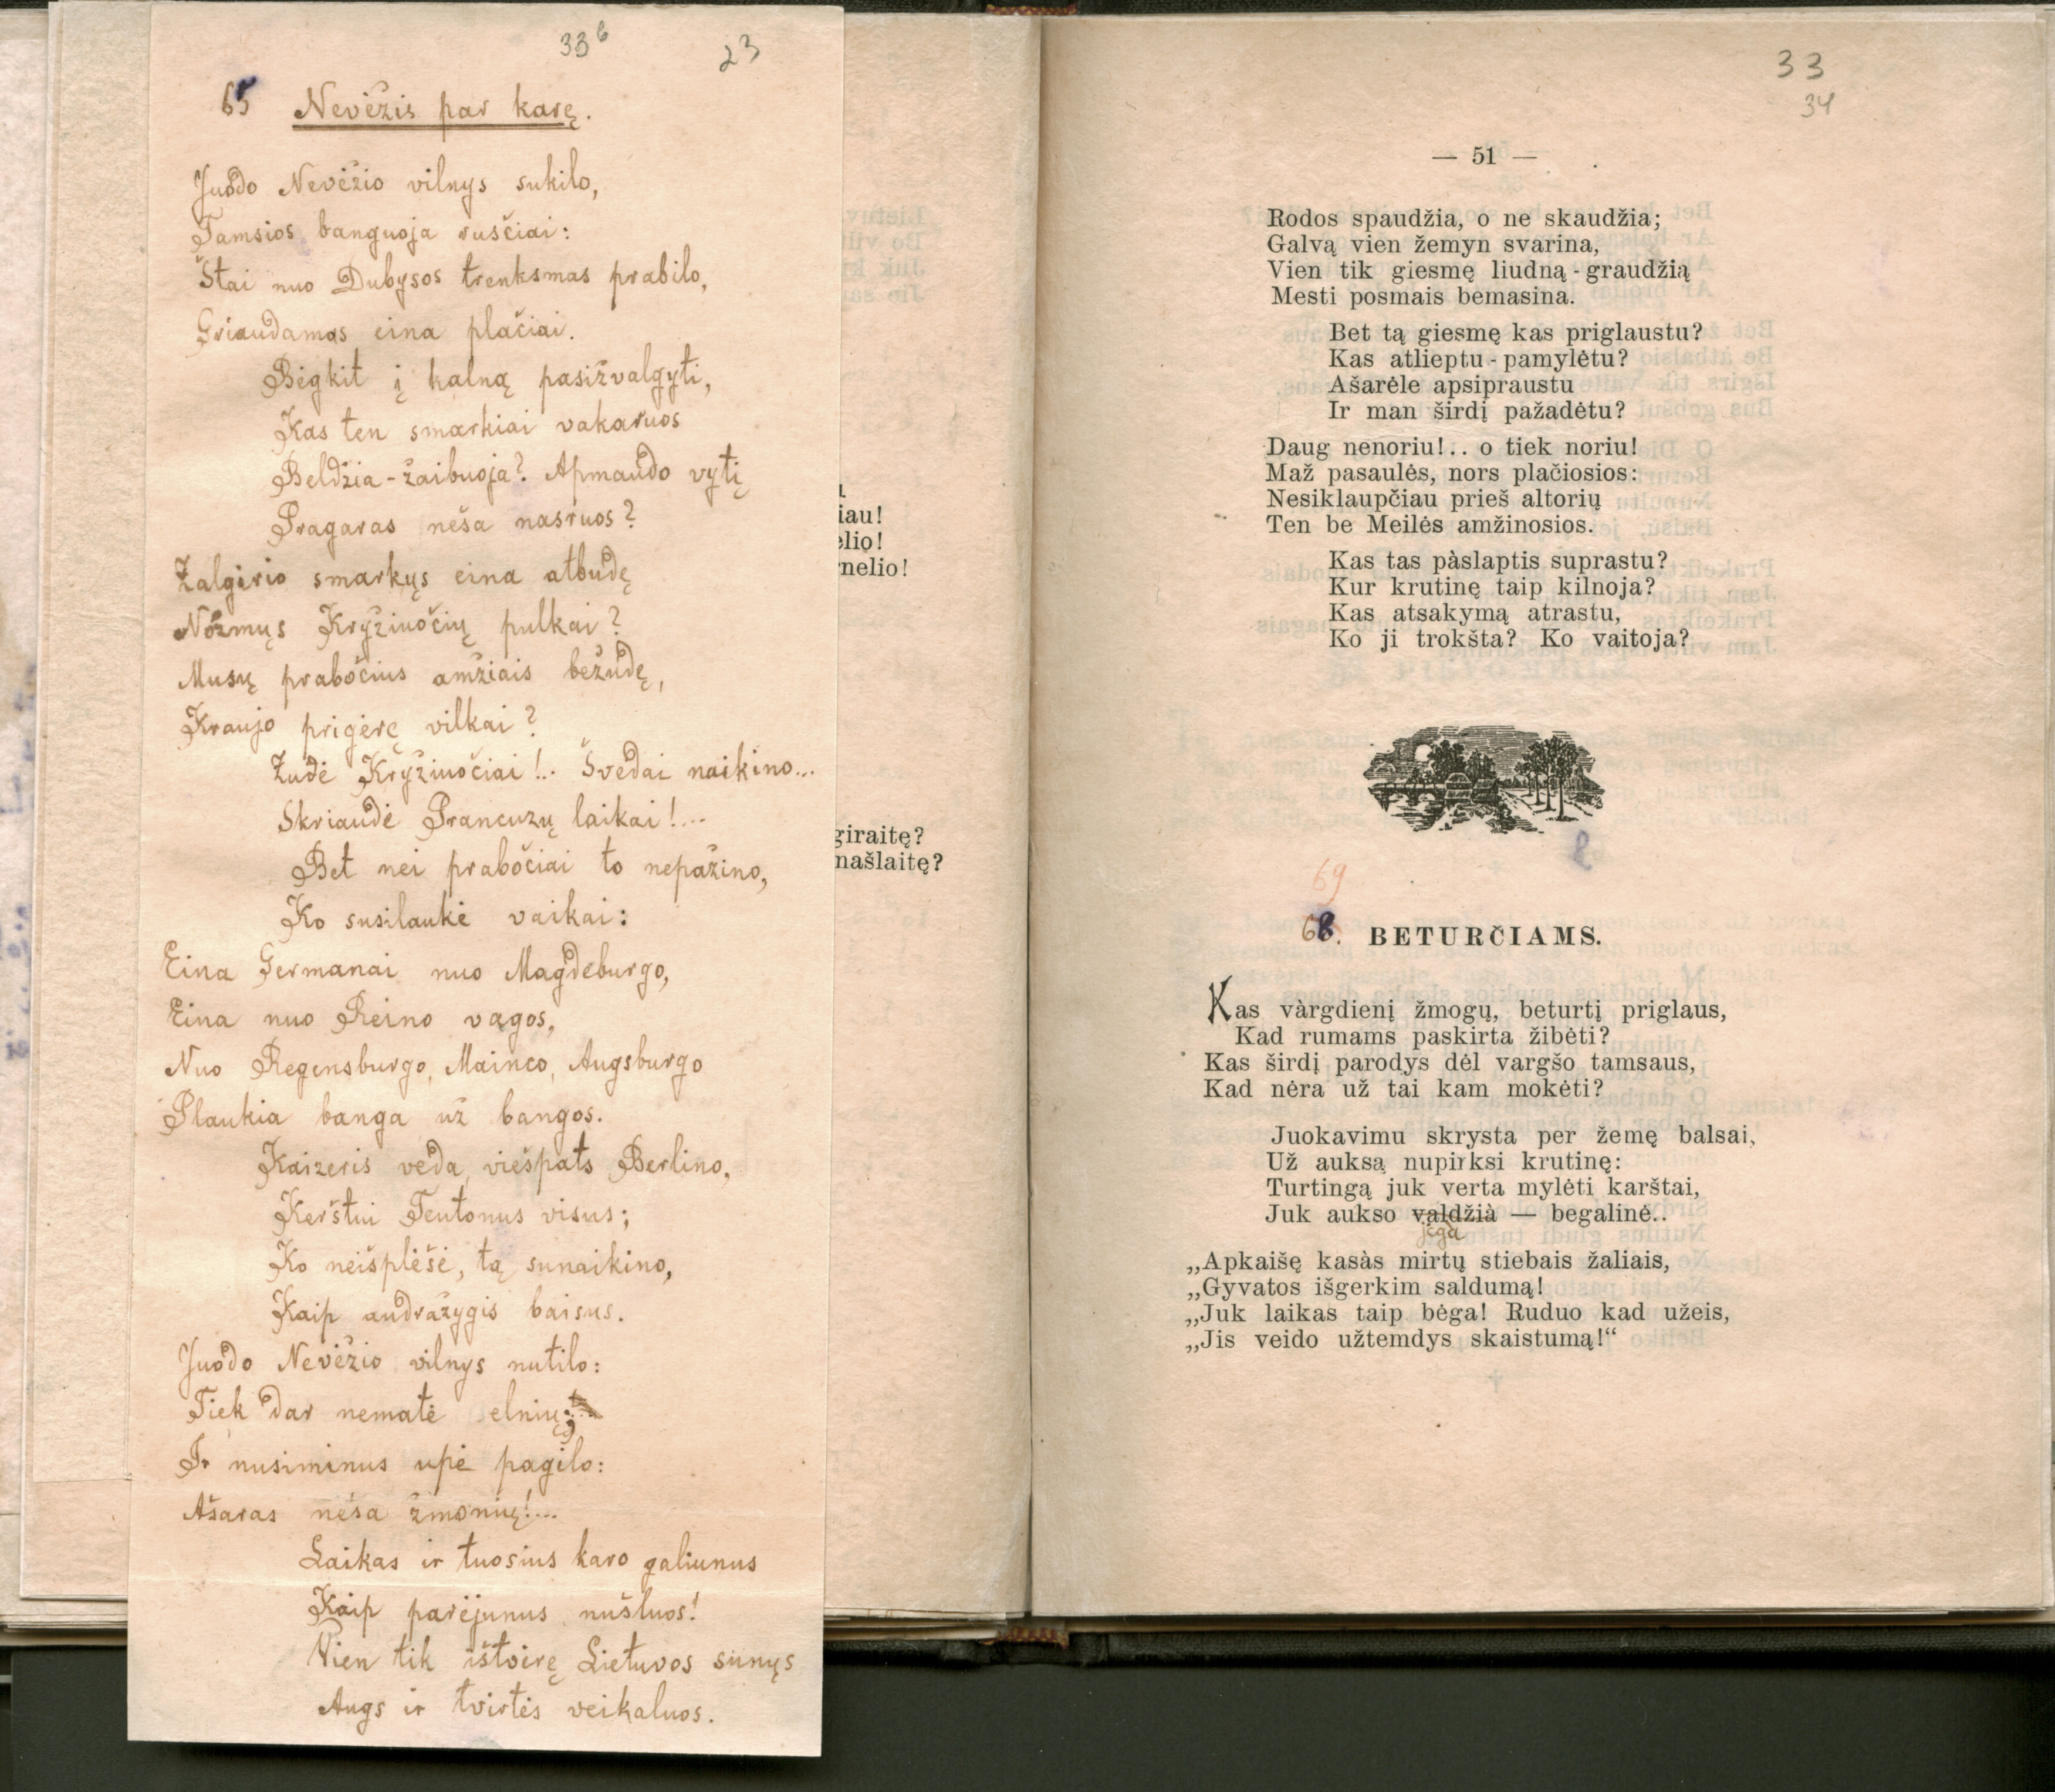 33b 23
65 Nevėžis par karę.
Juodo Nevėžio vilnys sukilo,
Tamsios banguoja rusčiai:
Štai nuo Dubysos trenksmas prabilo,
Griaudamas eina plačiai.
Bėgkit į kalną pasižvalgyti,
Kas ten smarkiai vakaruos
Beldžia-žaibuoja? Apmaudo vytį
Pragaras neša nasruos?
Žalgirio smarkųs eina atbudę
Nožmųs Kryžiuočių pulkai?
Musų prabočius amžiais bežudę,
Kraujo prigėrę vilkai?
Žudė Kryžiuočiai!.. Švedai naikino...
Skriaudė Prancuzų laikai!...
Bet nei prabočiai to nepažino,
Ko susilaukė vaikai:
Eina Germanai nuo Magdeburgo,
Eina nuo Reino vagos,
Nuo Regensburgo, Mainco, Augsburgo
Plaukia banga už bangos.
Kaizeris veda, viešpats Berlino,
Kerštui Teutonus visus;
Ko neišplėšė, tą sunaikino,
Kaip audražygis baisus.
Juodo Nevėžio vilnys nutilo:
Tiek dar nematė elnių;
Ir nusiminus upė pagilo:
Ašaras neša žmonių!...
Laikas ir tuosius karo galiunus
Kaip parėjunus nušluos!
Vien tik ištvėrę Lietuvos sunųs
Augs ir tvirtės veikaluos.
iau!
elio!
nelio!
giraitę?
našlaitę?
33
34
— 51 —
Rodos spaudžia, o ne skaudžia;
Galvą vien žemyn svarina,
Vien tik giesmę liudną-graudžią
Mesti posmais bemasina.
Bet tą giesmę kas priglaustu?
Kas atlieptu-pamylėtu?
Ašarėle apsipraustu
Ir man širdį pažadėtu?
Daug nenoriu!.. o tiek noriu!
Maž pasaulės, nors plačiosios:
Nesiklaupčiau prieš altorių
Ten be Meilės amžinosios.
Kas tas pàslaptis suprastu?
Kur krutinę taip kilnoja?
Kas atsakymą atrastu,
Ko ji trokšta? Ko vaitoja?
69
68. BETURČIAMS.
Kas vàrgdienį žmogų, beturtį priglaus,
Kad rumams paskirta žibėti?
Kas širdį parodys dėl vargšo tamsaus,
Kad nėra už tai kam mokėti?
Juokavimu skrysta per žemę balsai,
Už auksą nupirksi krutinę:
Turtingą juk verta mylėti karštai,
Juk aukso valdžià — begalinė..
jėga
„Apkaišę kasàs mirtų stiebais žaliais,
„Gyvatos išgerkim saldumą!
„Juk laikas taip bėga! Ruduo kad užeis,
„Jis veido užtemdys skaistumą!“